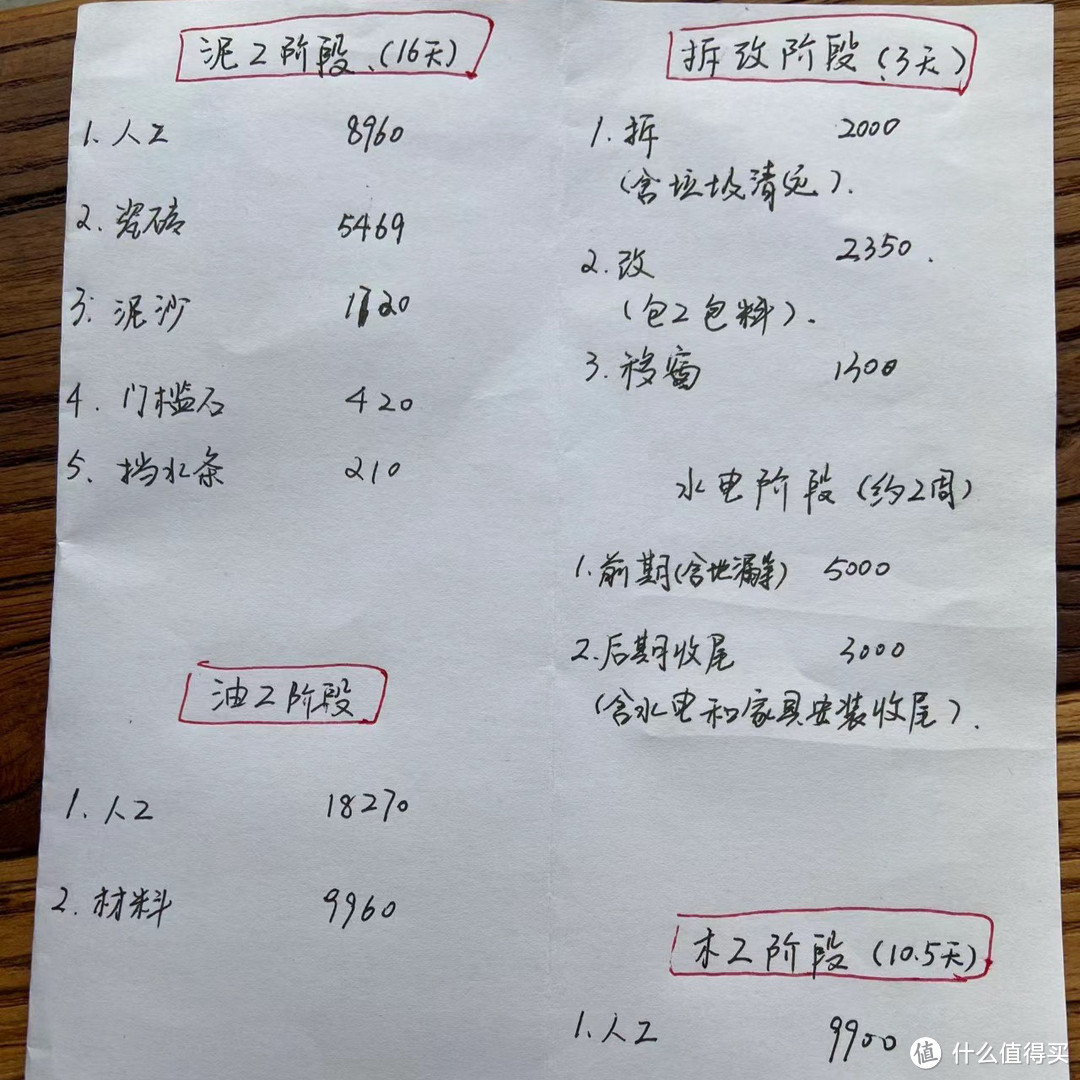 泥工阶段(16天)
1.人工 8960
2.瓷砖 5469
3.泥沙 1720
4.门槛石 420
5.挡水条 210
油工阶段
1.人工 18270
2.材料 9960
拆改阶段(3天)
1.拆 2000
(含垃圾清运).
2.改 2350.
(包工包料).
3.移窗 1300
水电阶段(约2周)
1.前期(含地漏等) 5000
2.后期收尾 3000
(含水电和家具安装收尾).
木工阶段(10.5天)
1.人工 9900
值 什么值得买